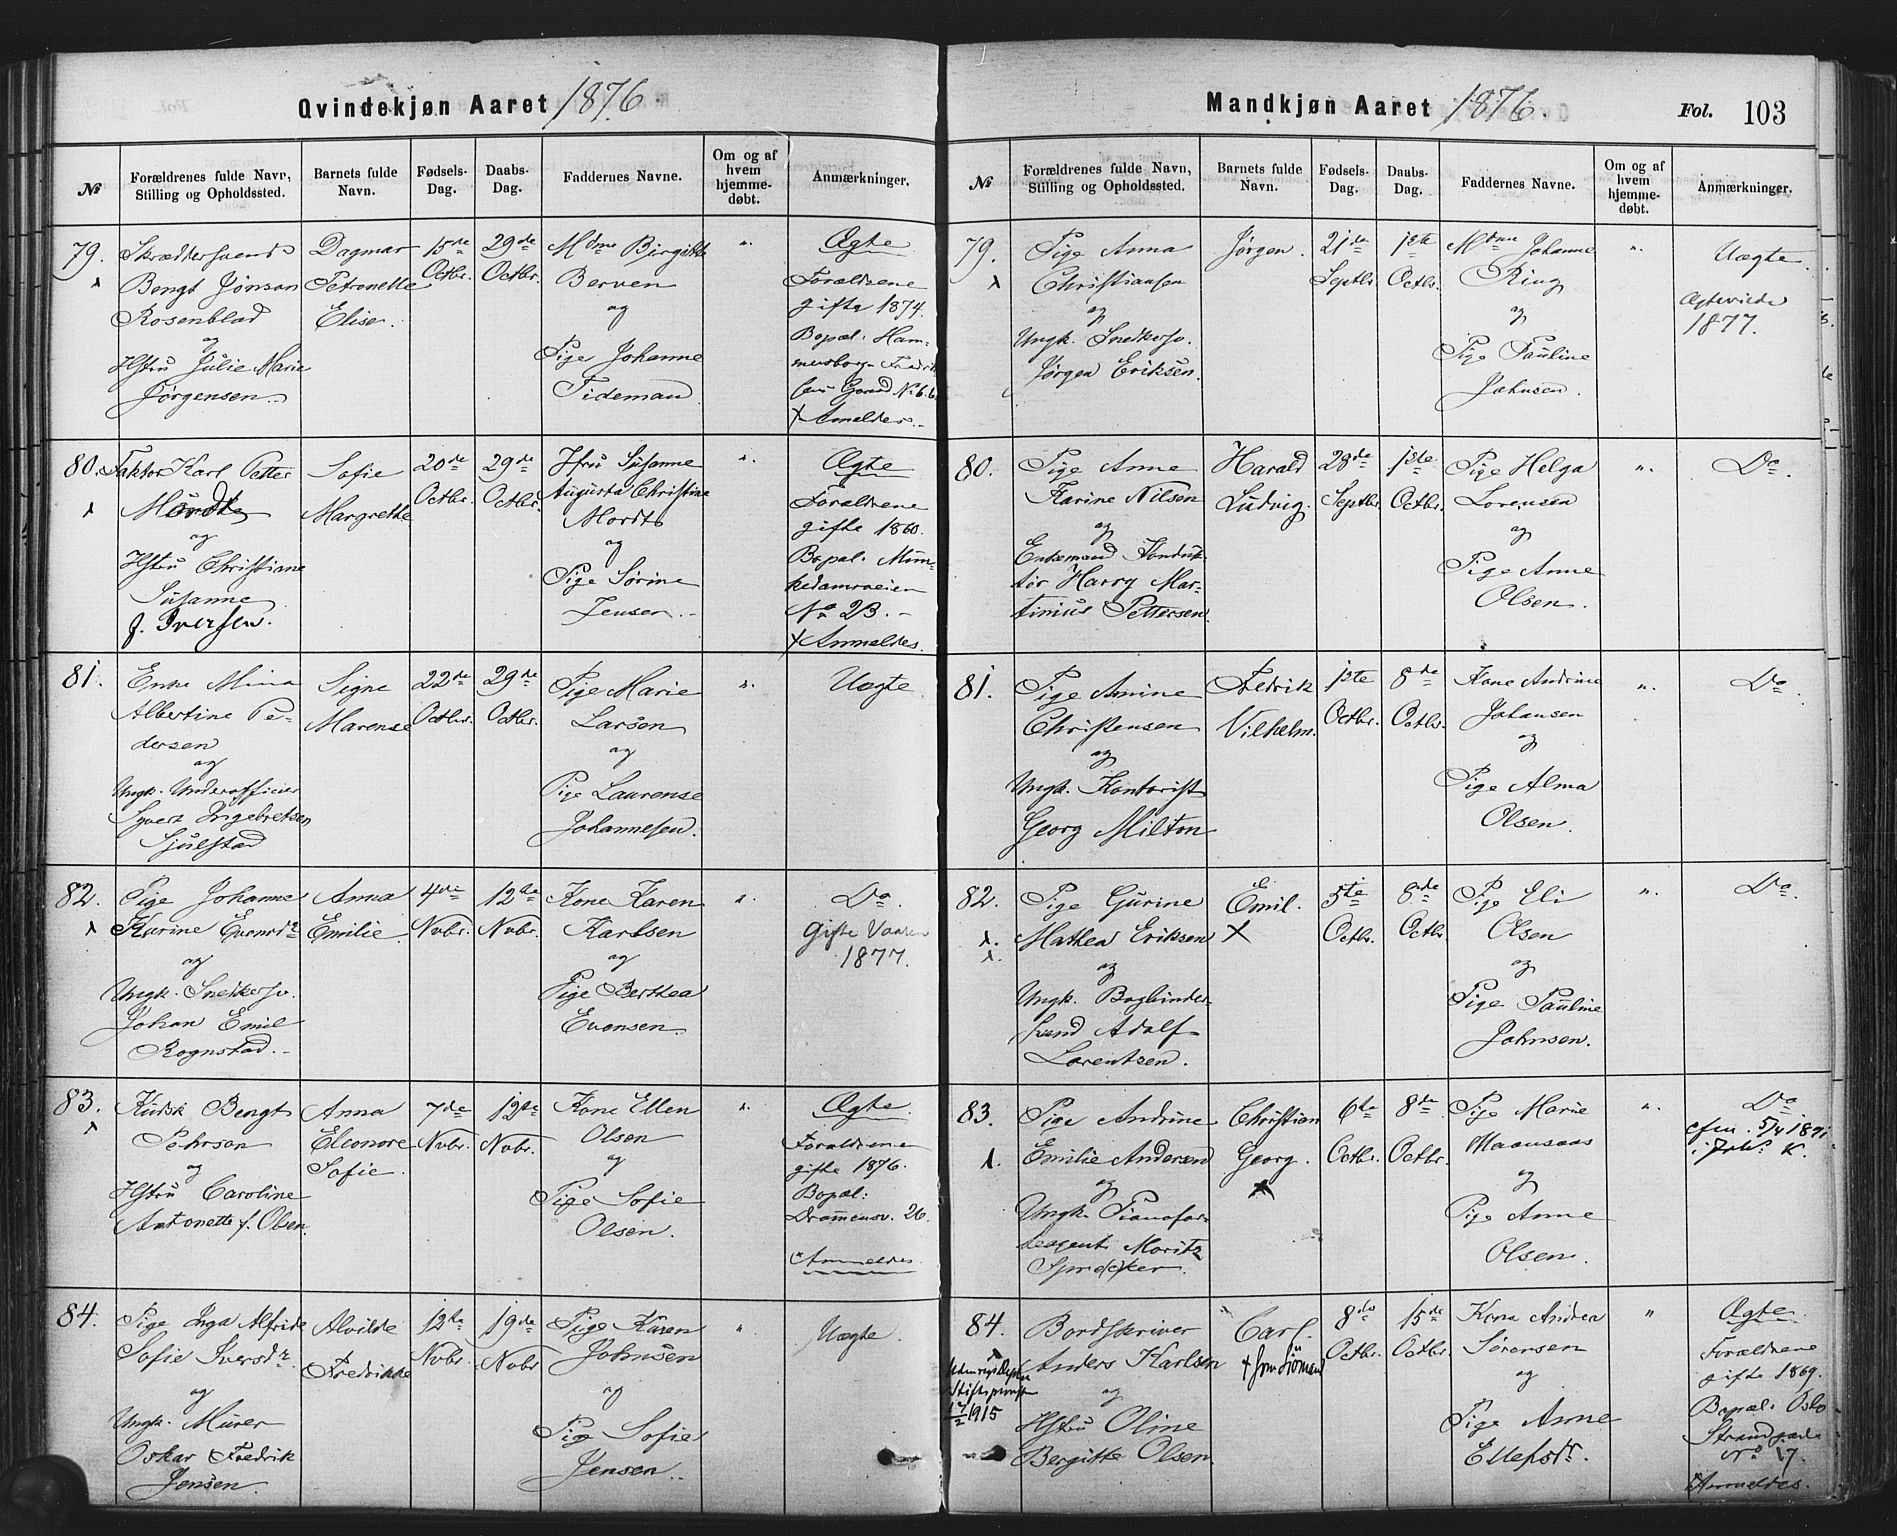 Qvindekjøn Aaret 1876
№
Forældrenes fulde Navn,
Stilling og Opholdssted.
Barnets fulde
Navn.
Fødsels-
Dag.
Daabs-
Dag.
Faddernes Navne.
Om og af
hvem
hjemme-
døbt.
Anmærkninger.
79.
Skrædersvend
Bengt Jönson
Rosenblad
og
Hstru Julie Marie
Jørgensen
Dagmar
Petronelle
Elise.
15de
Octbr.
29de
Octbr.
Mdme Birgitte
Berven
og
Pige Johanne
Tideman
"
Ægte
Forældrene
gifte 1874.
Bopæl: Ham-
mersborg
Anmeldes.
80.
Faktor Karl Petter
Mordt
og
Hstru Christiane
Susanne
f. Iversen.
Sofie
Margrethe
20de
Octbr.
29de
Octbr.
Hfru Susanne
Augusta Christine
Mordt
og
Pige Sørine
Jensen.
"
Ægte
Forældrene
gifte 1860.
Bopæl: Mun-
kedamsveien
No 23.
Anmeldes.
81.
Enke Mina
Albertine Pe-
dersen
og
Ungk. Underofficier
Syvert Ingebretsen
Sjulstad
Signe
Marense
22de
Octbr.
29de
Octbr.
Pige Marie
Larsen
og
Pige Laurense
Johannesen.
"
Uægte
82.
Pige Johanne
Karine Evensdr
og
Ungk. Snedkersv.
Johan Emil
Rognstad.
Anna
Emilie.
4de
Nvbr.
12te
Nvbr.
Kone Karen
Karlsen
og
Pige Berthea
Evensen.
"
Do.
Gifte Vaaren
1877.
83.
Kudsk Bengt
Pehrson
og
Hstru Caroline
Antonette f. Olsen.
Anna
Eleonore
Sofie.
7de
Nvbr.
12te
Nvbr.
Kone Ellen
Olsen
og
Pige Sofie
Olsen.
"
Ægte.
Forældrene
gifte 1876.
Bopæl:
Drammensv. 26.
Anmeldes
84.
Pige Inga Alfride
Sofie Iversdr
og
Ungk. Murer
Oskar Fredrik
Jensen.
Alvilde
Fredrikke
12te
Nvbr.
19de
Nvbr.
Pige Karen
Johnsen
og
Pige Sofie
Jensen.
"
Uægte.
Mandkjøn Aaret 1876.
Fol. 103
№
Forældrenes fulde Navn,
Stilling og Opholdssted.
Barnets fulde
Navn.
Fødsels-
Dag.
Daabs-
Dag.
Faddernes Navne.
Om og af
hvem
hjemme-
døbt.
Anmærkninger.
79.
Pige Anna
Christiansen
og
Ungk. Snedkersv.
Jørgen Eriksen.
Jørgen.
21de
Septbr.
1ste
Octbr.
Mdme Johanne
Ring
og
Pige Pauline
Johnsen.
"
Uægte.
Ægteviede
1877.
80.
Pige Anne
Karine Nilsen
og
Enkemand Konduk-
tør Harry Mar-
tinius Pettersen.
Harald
Ludvig.
28de
Septbr.
1ste
Octbr.
Pige Helga
Lorensen
og
Pige Anne
Olsen.
"
Do
81.
Pige Amine
Christensen
og
Ungk. Kontorist
Georg Milton
Fredrik
Vilhelm.
1ste
Octbr.
8de
Octbr.
Kone Andrine
Johansen
og
Pige Alma
Olsen.
"
Do
82.
Pige Gurine
Mathea Eriksen
og
Ungk. Bogbinder-
svend Adolf
Lorentsen.
Emil.
5te
Octbr.
8de
Octbr.
Pige Eli
Olsen
og
Pige Pauline
Johnsen.
"
Do
83.
Pige Andrine
Emilie Andersen
og
Ungk. Pianofor-
teagent Moritz
Christian
Georg.
6te
Octbr.
8de
Octbr.
Pige Marie
Maansaas
og
Pige Anne
Olsen.
"
Do
84.
Bordskriver
Anders Karlsen
og
Hstru Oline
Bergitte Olsen.
1915
Carl.
8de
Octbr.
15de
Octbr.
Kone Andrea
Sørensen
og
Pige Anne
Ellefsdr.
"
Ægte.
Forældrene
gifte 1869.
Bopæl: Oslo
Strandgade
No 17.
Anmeldes.